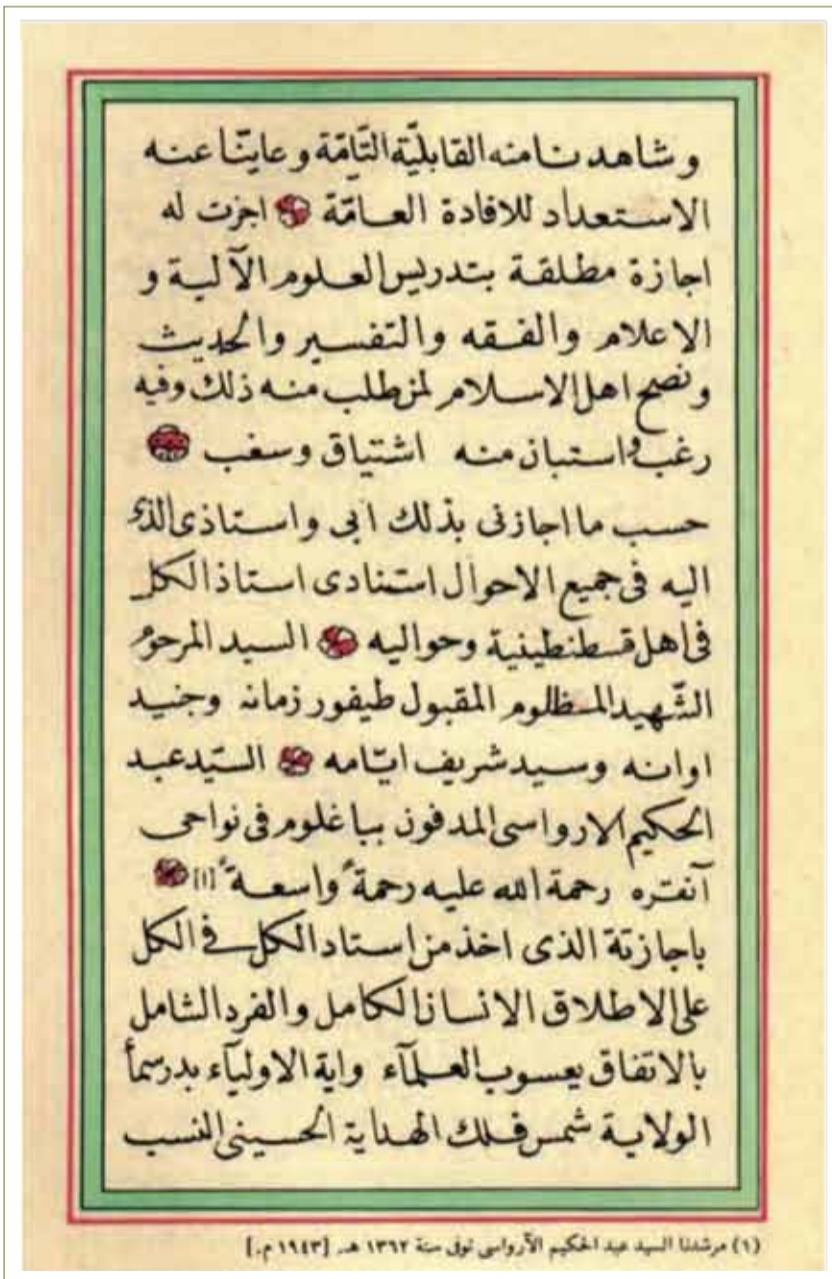 و شاهدنا منه القابليّة التّامّة و عاينّا عنه
الاستعداد للافادة العامّة اجزت له
اجازة مطلقة بتدريس العلوم الآلية و
الاعلام والفقه والتفسير والحديث
ونصح اهل الاسلام لمن طلب منه ذلك وفيه
رغب واستبان منه اشتياق وسغب
حسب ما اجازنى بذلك ابى واستاذى الذى
اليه فى جميع الاحوال استنادى استاذ الكل
فى اهل قسطنطينية وحواليه السيد المرحوم
الشّهيد المظلوم المقبول طيفور زمانه وجنيد
اوانه وسيد شريف ايّامه السّيد عبد
الحكيم الارواسى المدفون بباغلوم فى نواحى
آنقره رحمة الله عليه رحمةً واسعةً [١]
باجازتة الذى اخذ من استاد الكل فى الكل
على الاطلاق الانسان الكامل والفرد الشامل
بالاتفاق يعسوب العلمآء واية الاوليآء بدر سمأ
الولاية شمس فلك الهداية الحسينى النسب
(١) مرشدنا السيد عبد الحكيم الآرواسى توفى سنة ١٣٦٢ هـ. [١٩٤٣ م.]